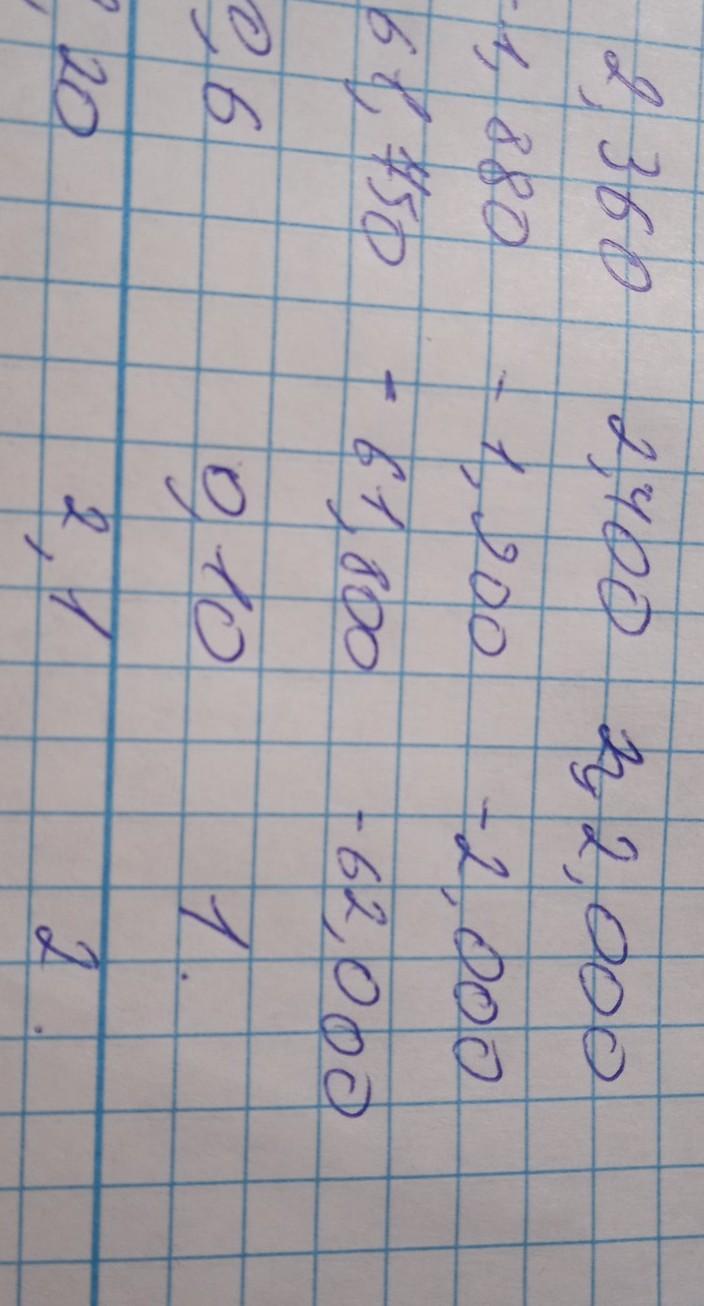 2,360 2,400 2,000
-1,880 - 1,900 -2,000
61,750 - 61,800 -62,000
0,6 0,10 1.
20 2,1 2.